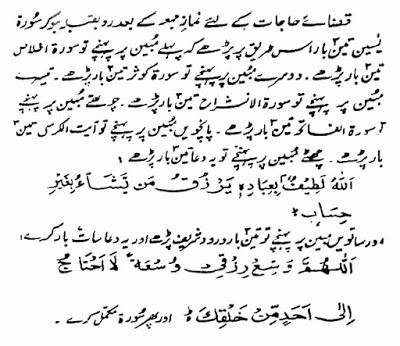 قضائے حاجات کے لئے نماز جمعہ کے بعد رو بقبلہ ہو کر سُورۃ
یٰسین تین بار اس طریق پر پڑھے کہ پہلے مُبین پر پہنچے تو سورۃ اخلاص
تین بار پڑھے۔ دوسرے مُبین پر پہنچے تو سورۃ کوثر تین بار پڑھے۔ تیسرے
مُبین پر پہنچے تو سورۃ الانشراح تین بار پڑھے۔ چوتھے مُبین پر پہنچے
تو سورۃ الفاتحہ تین بار پڑھے۔ پانچویں مُبین پر پہنچے تو آیت الکرسی تین
بار پڑھے۔ چھٹے مُبین پر پہنچے تو یہ دعا تین بار پڑھے:
اَللهُ لَطِيْفٌۢ بِعِبَادِهٖ يَرْزُقُ مَن يَّشَآءُ بِغَيْرِ
حِسَابٍ
اور ساتویں مبین پر پہنچے تو تین بار درود شریف پڑھے اور یہ دعا سات بار کرے:
اَللّٰهُمَّ وَسِّعْ رِزْقِيْ وُسْعَةً لَا اَحْتَاجُ
اِلٰى اَحَدٍ مِّنْ خَلْقِكَ اور پھر سُورۃ مکمل کرے۔